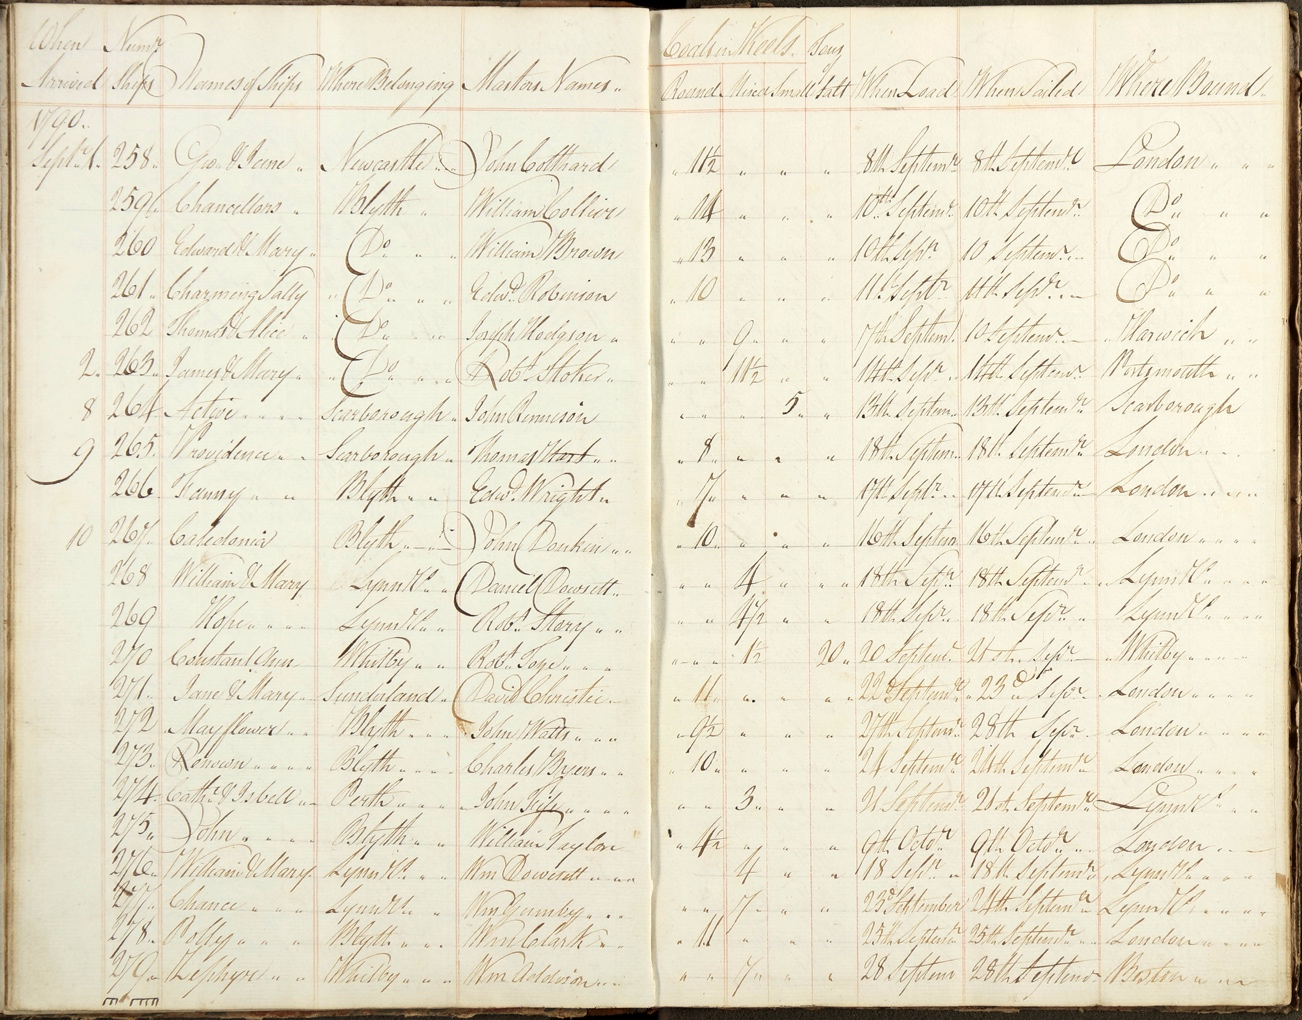 When Numr. Coals in Keels. Tons
Arrived Ships Names of Ships Where Belonging Masters Names Round Mixed Small Salt When Load When Sailed Where Bound
1790.
Septr. 1. 258 Geo. & Jeene Newcastle John Cotthard 11½ 8th Septemr. 8th Septemr. London
259 Chancellors Blyth William Collier 14 10th Septemr. 10th Septemr. Do
260 Edward & Mary Do William Brown 13 10th Sepr. 10 Septem. Do
261 Charming Sally Do Edwd. Robinson 10 11th Septr. 11th Sepr. Do
262 Thomas & Alice Do Joseph Hodgson 9 7th Septem. 10 Septemr. Harwich
2. 263 James & Mary Do Robt. Stoker 11½ 14th Sepr. 14th Septemr. Portsmouth
8 264 Active Scarborough John Rennison 5 13th Septem. 13th Septemr. Scarborough
9 265 Providence Scarborough Thomas Hart 8 18th Septem. 18th Septemr. London
266 Fanny Blyth Edwd. Wright 7 17th Septr. 17th Septemr. London
10 267 Caledonia Blyth John Donkin 10 16th Septem 16th Septemr. London
268 William & Mary Lynn Daniel Dowsett 4 18th Sepr. 18th Septemr. Lynn
269 Hope Lynn Robt. Story 4½ 18th Sepr. 18th Sepr. Lynn
270 Constant Ann Whitby Robt. 1½ 20 20 Septemr. 21st Sepr. Whitby
271 Jane & Mary Sunderland David Christie 11 22d Septemr. 23d Sepr. London
272 Mayflower Blyth John Watts 9½ 27th Septemr. 28th Sepr. London
273 Renown Blyth Charles Byers 10 24 Septemr. 24th Septemr. London
274 Cathr. & Isbell Perth John Fife 3 21 Septemr. 21st Septemr. Lynn
275 John Blyth William Taylor 4½ 9th Octor. 9th Octor. London
276 William & Mary Lynn Wm Dowsett 4 18 Sepr. 18th Septemr. Lynn
277 Chance Lynn Wm Gamby 7 23d September 24th Septemr. Lynn
278 Polly Blyth Wm Clark 11 25th Septemr 25th Septemr. London
279 Zephyr Whitby Wm Addison 7 28 Septemr 28th Septemr. Boston